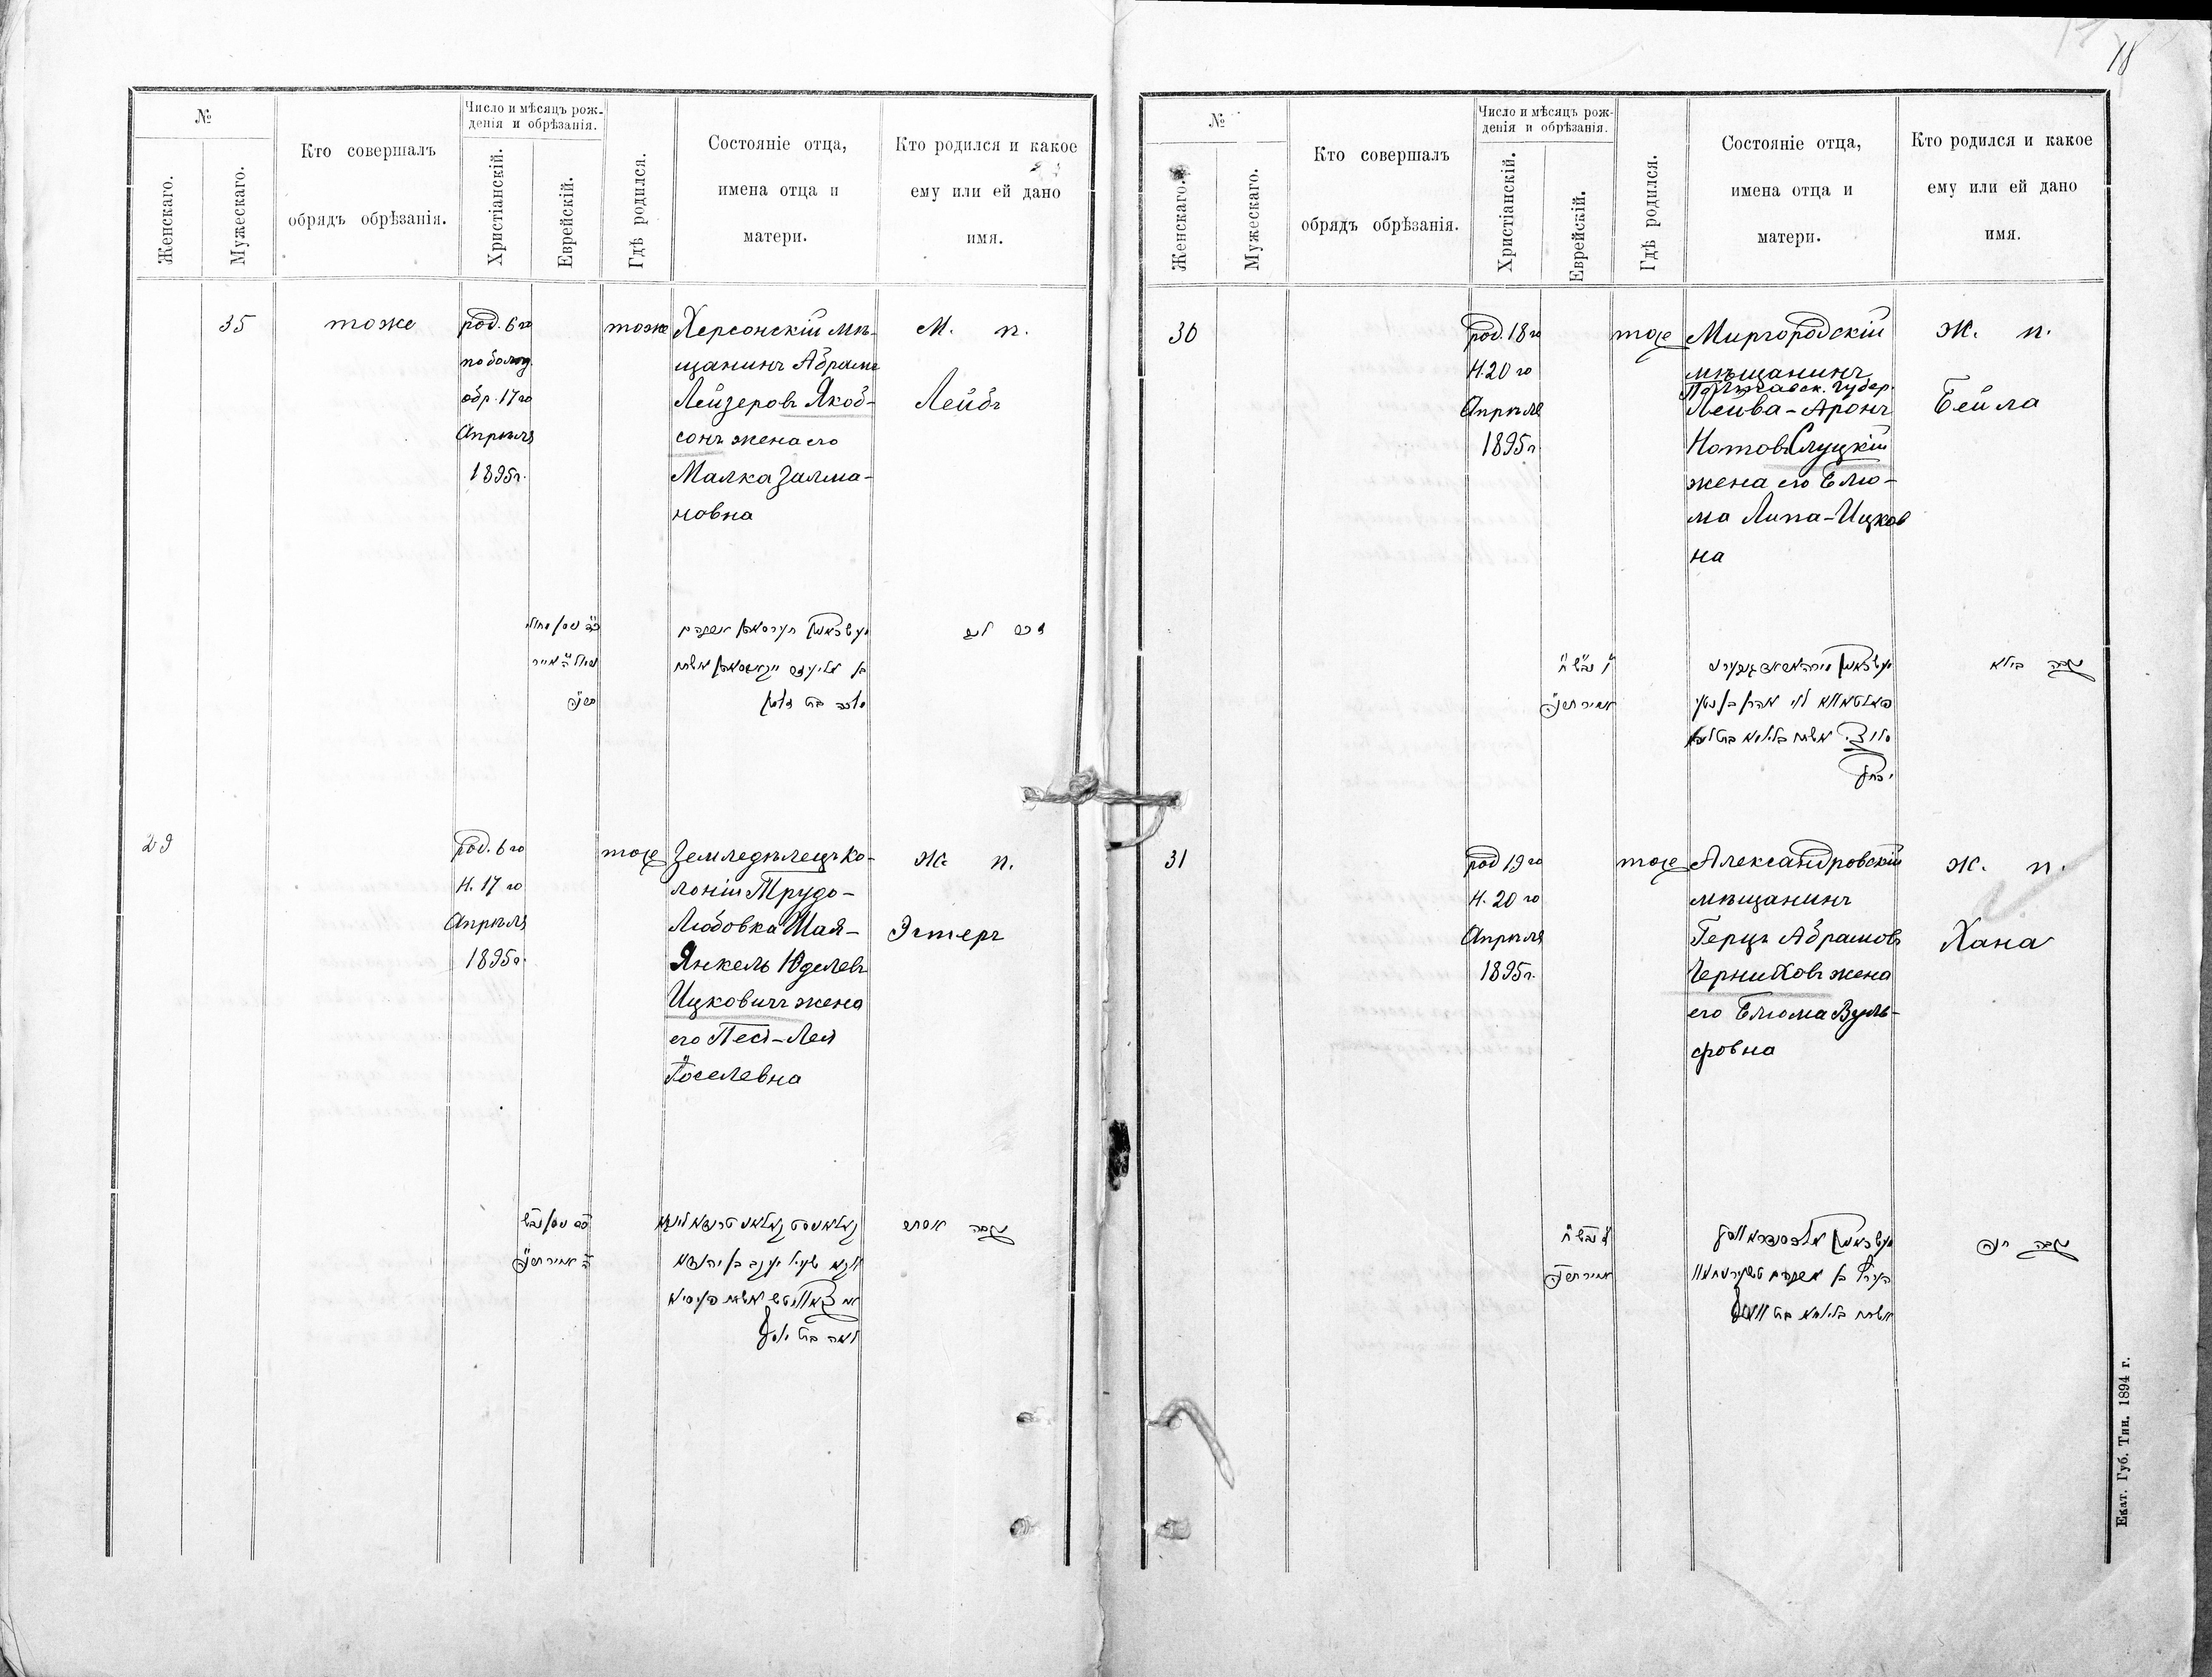 18
№
Женскаго.
Мужескаго.
Кто совершалъ
обрядъ обрѣзанія.
Число и мѣсяцъ рож-
денія и обрѣзанія.
Христіанскій.
Еврейскій.
Гдѣ родился.
Состояніе отца,
имена отца и
матери.
Кто родился и какое
ему или ей дано
имя.
35
тоже
род. 6го
по болѣз.
обр. 17го
Апрѣля
1895г.
тоже
Херсонскій мѣ-
щанинъ Абрамъ
Лейзеровъ Якоб-
сонъ жена его
Малка Залма-
новна
М. п.
Лейбъ
זכר לייב
בן אליעזר יאקאבסאהן אשתו
מלכה בת זלמן
29
род. 6го
Н. 17го
Апрѣля
1895г.
тоже
Земледѣлецъ ко-
лоніи Трудо-
Любовка Шая-
Янкель Юделевъ
Ицковичъ жена
его Песя-Лея
Іоселевна
Ж. п.
Эстеръ
נקבה אסתר
לאה בת יוסף
№
Женскаго.
Мужескаго.
Кто совершалъ
обрядъ обрѣзанія.
Число и мѣсяцъ рож-
денія и обрѣзанія.
Христіанскій.
Еврейскій.
Гдѣ родился.
Состояніе отца,
имена отца и
матери.
Кто родился и какое
ему или ей дано
имя.
30
род. 18го
Н. 20го
Апрѣля
1895г.
тоже
Миргородскій
мѣщанинъ
Полтавск. губер.
Лейва-Аронъ
Нотовъ Слуцкій
жена его Блю-
ма Липа-Ицков
на
Ж. п.
Бейла
נקבה ביילא
31
род 19го
Н. 20го
Апрѣля
1895г.
тоже
Александровскій
мѣщанинъ
Герцъ Абрамовъ
Черниховъ жена
его Блюма Вуль-
фовна
Ж. п.
Хана
נקבה חנה
אשתו בליומא בת וואלף
Екат. Губ. Тип. 1894 г.